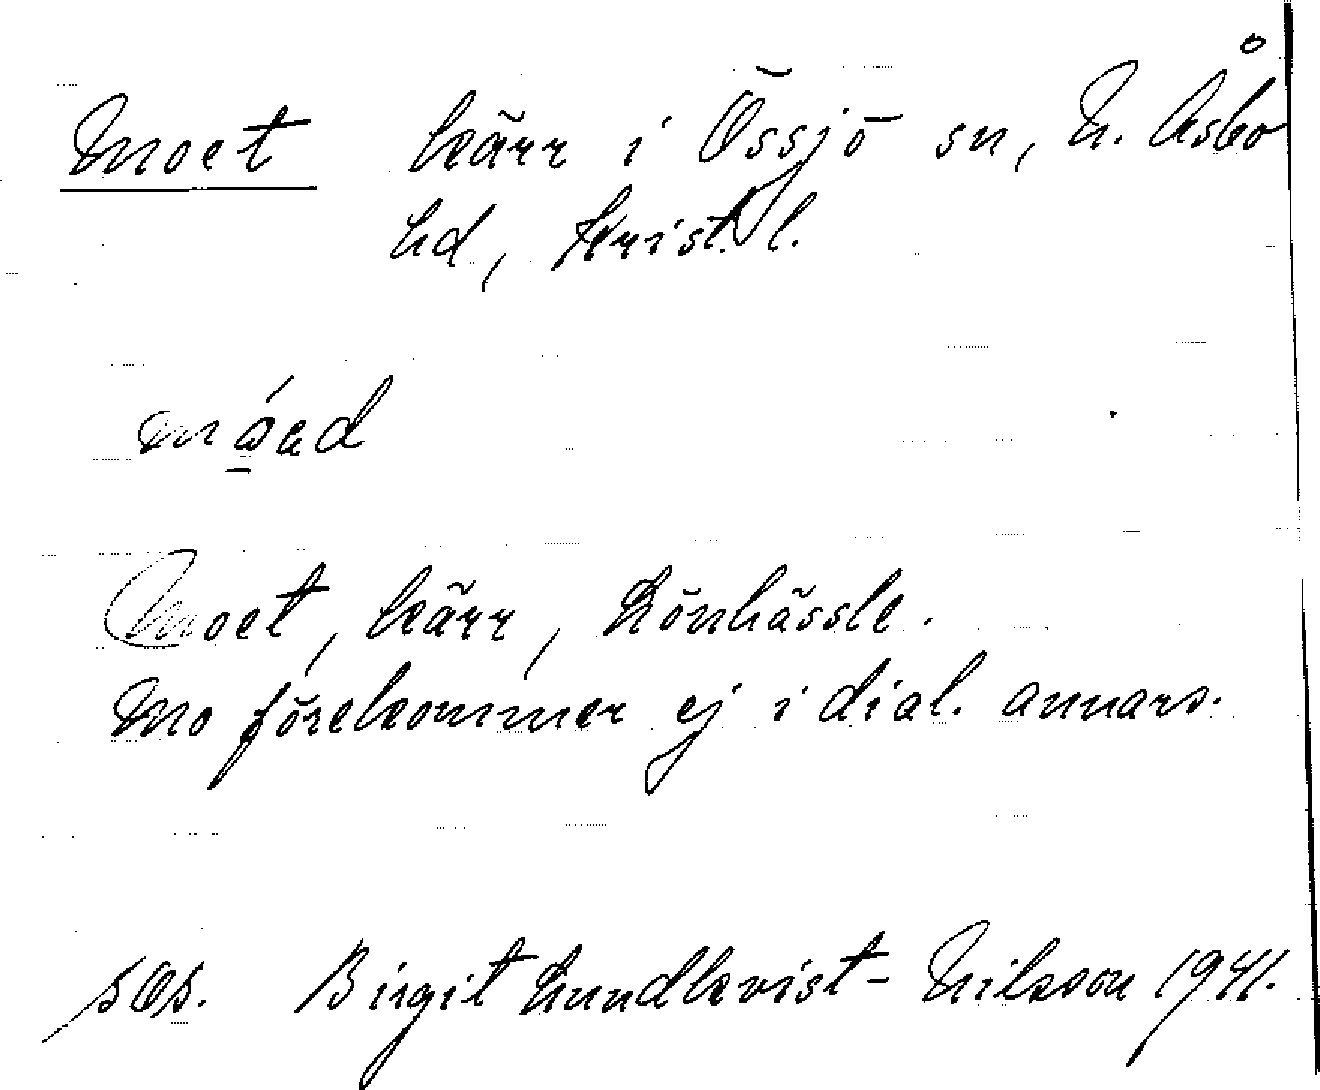 Moet kärr i Össjö sn, N. Åsbo
hd, Krist. l.
Moet, kärr, Lönhässle.
Mo förekommer ej i dial. annars.
Birgit Lundkvist-Nilsson 1941.